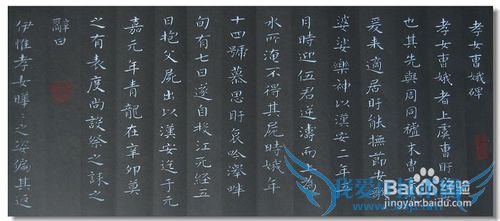 孝女曹娥碑
孝女曹娥者上虞曹盱
也其先與周同末曹
爰来適居盱能撫節安
婆娑樂神以漢安二年
月時迎伍君逆濤而上為
水所淹不得其屍時娥年
十四號慕思盱哀吟澤畔
旬有七日遂自投江死經五
日抱父屍出以漢安迄于元
嘉元年青龍在辛卯莫
之有表度尚設祭之誄之
辭曰
伊惟孝女曄〻之姿偏其返
Baidu 经验
jingyan.baidu.com